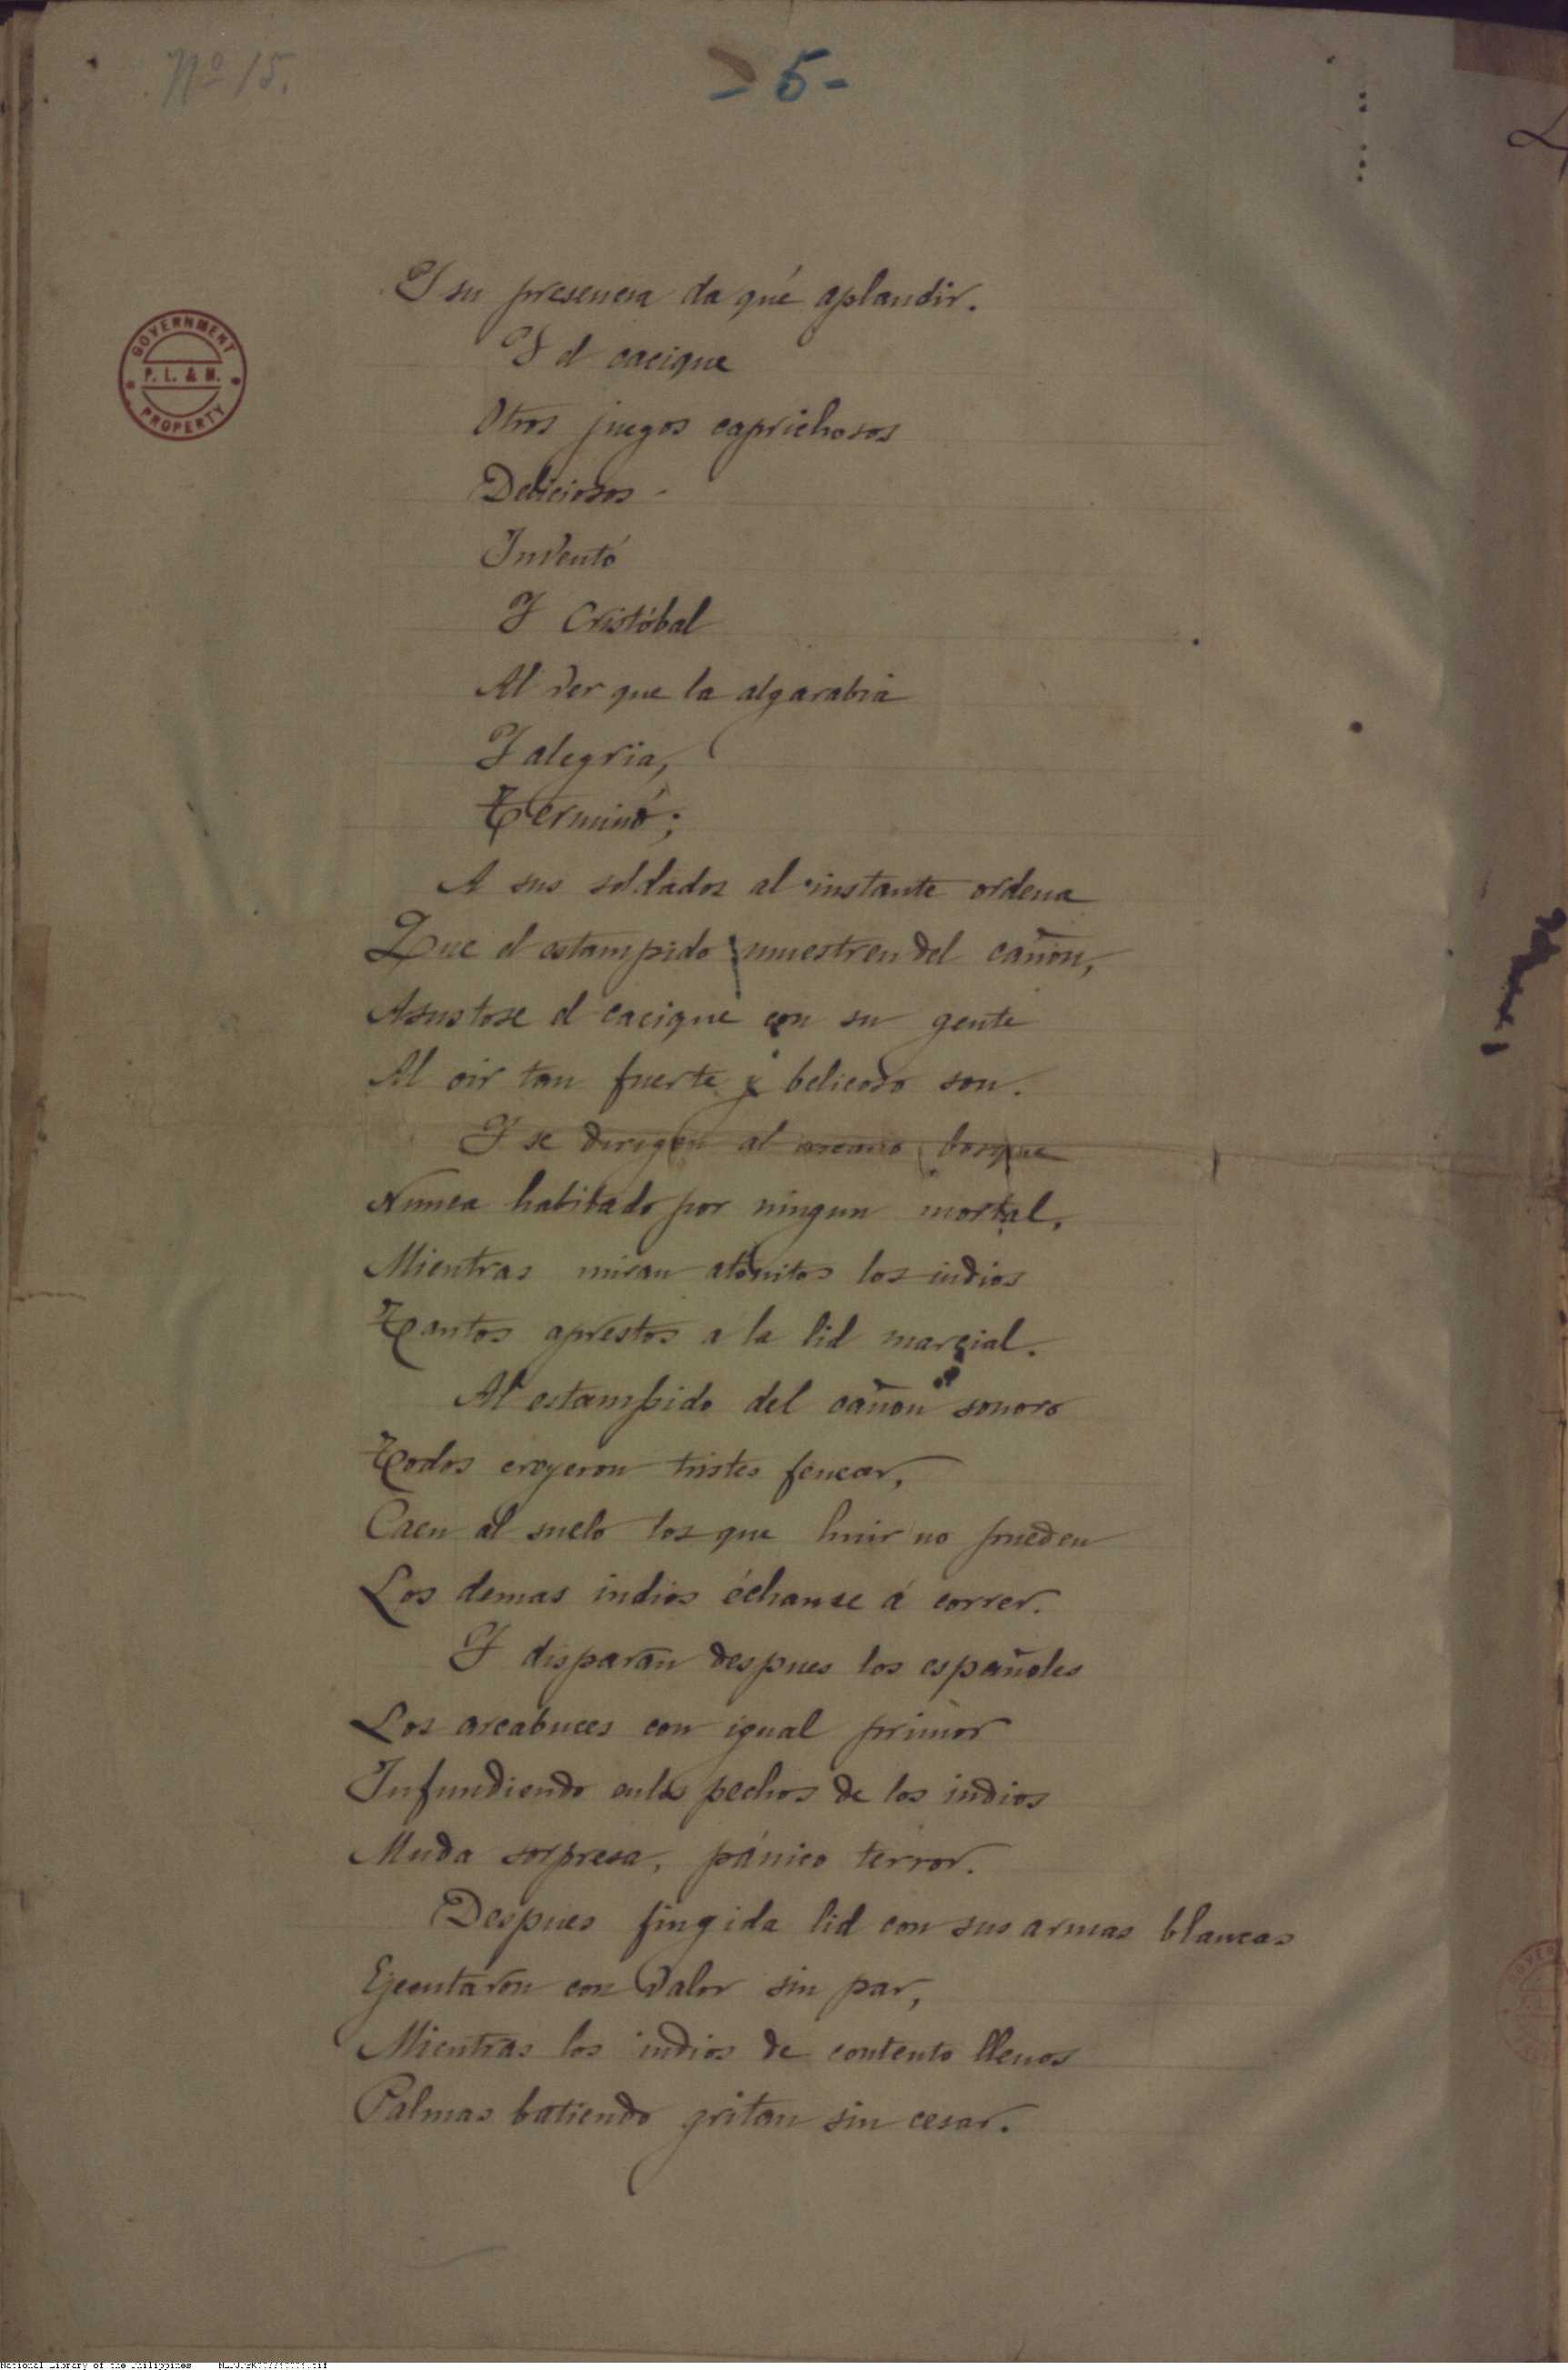 Nº 15.
- 5 -
Y su presencia da qué aplaudir.
Y el cacique
Otros juegos caprichosos
Deliciosos
Inventó
Y Cristóbal
Al ver que la algarabia
Y alegria,
Terminó;
A sus soldados al instante ordena
Que el estampido muestren del cañon,
Asustose el cacique con su gente
Al oir tan fuerte y belicoso son.
Y se dirigen al arcano bosque
Nunca habitado por ningun mortal,
Mientras miran atónitos los indios
Tantos aprestos a la lid marcial.
Al estampido del cañon sonoro
Todos creyeron tristes fenecer,
Caen al suelo los que huir no pueden
Los demas indios échanse á correr.
Y disparan despues los españoles
Los arcabuces con igual primor
Infundiendo en los pechos de los indios
Muda sorpresa, pánico terror.
Despues fingida lid con sus armas blancas
Ejecutaron con valor sin par,
Mientras los indios de contento llenos
Palmas batiendo gritan sin cesar.
GOVERNMENT
P. L. & M.
PROPERTY
National Library of the Philippines